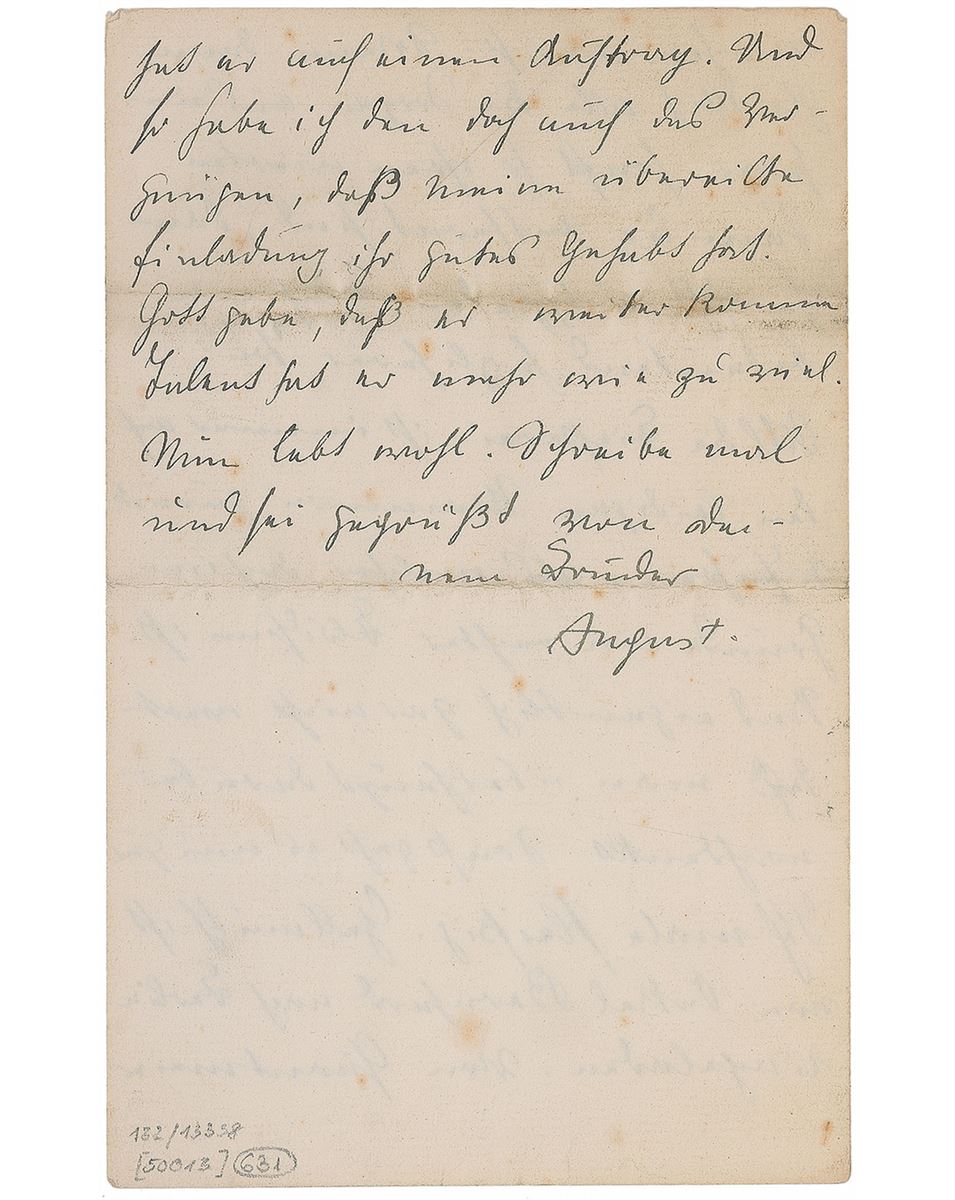 hat er auch einen Auftrag. Und
so habe ich den doch auch das Ver-
gnügen, daß meine übereilte
Einladung ihr gutes Gehabt hat.
Gott gebe, daß er weiter komme
Talent hat er mehr wie zu viel.
Nun lebt wohl. Schreibe mal
und sei gegrüßt von dei-
nem Bruder
August.
132/13338
[50013] 631